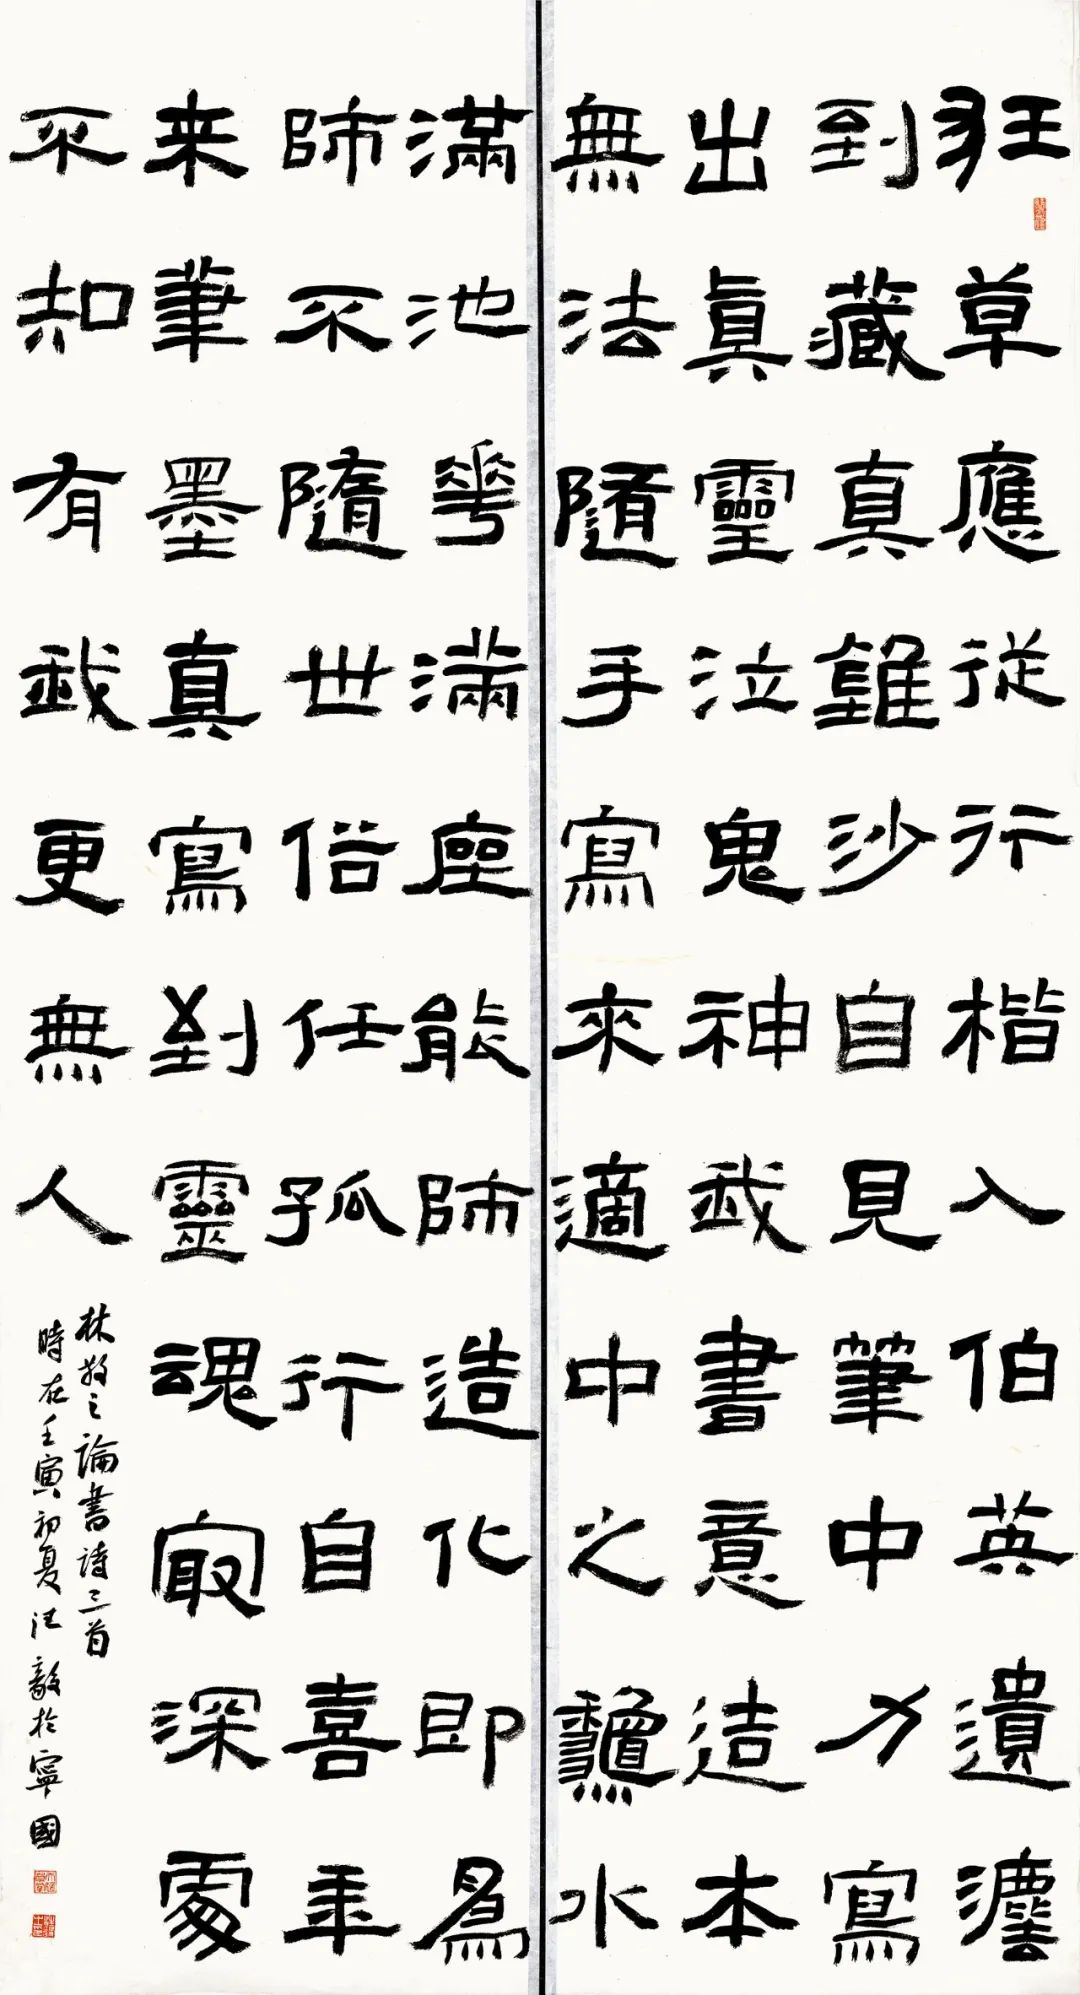 狂草應從行楷入伯英遺灋
到藏真錐沙自見筆中力寫
出眞靈泣鬼神我書意造本
無法隨手寫來適中之龝水
滿池華滿座能師造化即為
師不隨世俗任孤行自喜年
来筆墨真寫到靈魂冣深處
不知有我更無人
林散之論書詩三首
時在壬寅初夏汪毅於寧國